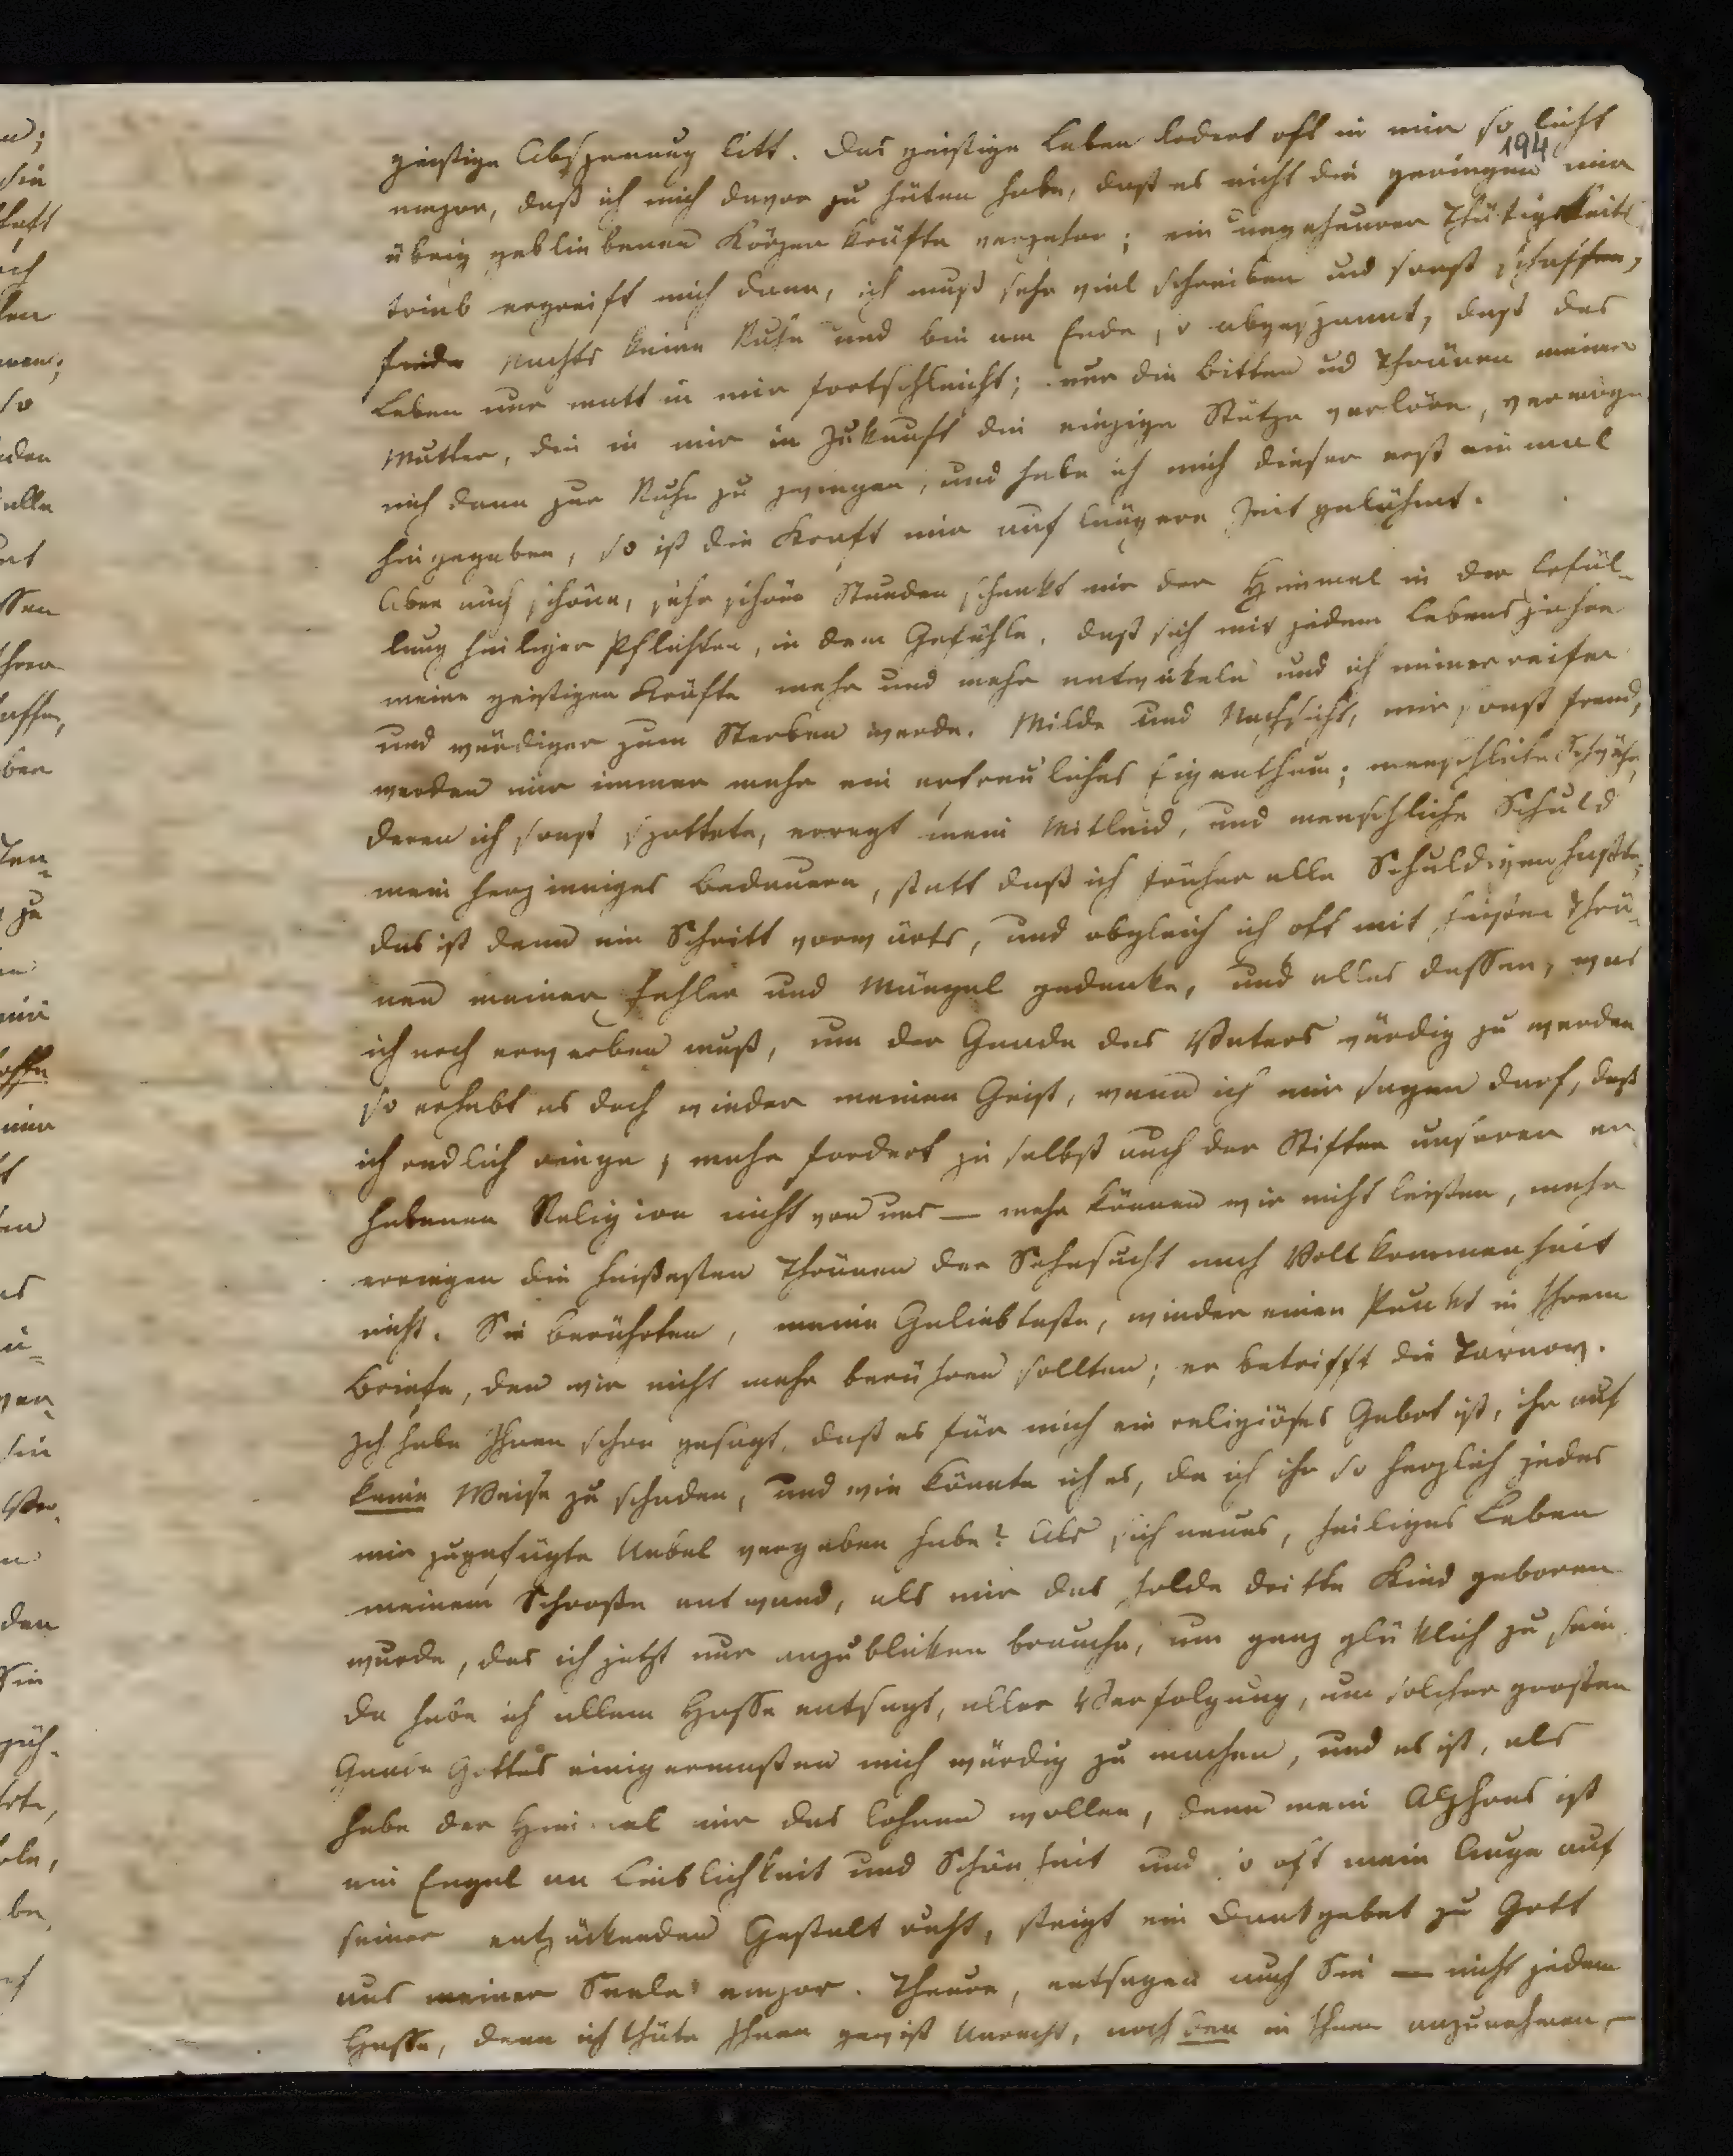 194
geistige Abspannung litt. Das geistige Leben lodert oft in mir so licht
empor, daß ich mich davor zu hüten habe, daß es nicht die geringen mir
übrig gebliebenen Körper Kräfte verzehre; ein ungeheurer Thätigkeits
trieb ergreift mich dann, ich muß sehr viel schreiben und sonst schaffen,
finde Nachts keine Ruhe und bin am Ende so abgespannt, daß das
Leben nur matt in mir fortschleicht; nur die Bitten und Thränen meiner
Mutter, die in mir in Zukunft die einzige Stütze verlöre, vermögen
mich dann zur Ruhe zu zwingen, und habe ich mich dieser erst einmal
hingegeben, so ist die Kraft mir auf längere Zeit gelähmt.
Aber auch schöne, sehr schöne Stunden schenkt mir der Himmel in der Erfül-
lung heiliger Pflichten, in dem Gefühle, daß sich mit jedem Lebensjahre
meine geistigen Kräfte mehr und mehr entwickeln und ich immer reifer
und würdiger zum Sterben werde. Milde und Nachsicht, mir sonst fremd,
werden mir immer mehr ein erfreuliches Eigenthum; menschliche Schwäche,
deren ich sonst spottete, erregt mein Mitleid, und menschliche Schuld
mein herzinniges Bedauern, statt daß ich früher alle Schuldigen haßte;
das ist denn ein Schritt vorwärts, und obgleich ich oft mit heißen Thrä-
nen meiner Fehler und Mängel gedenke, und alles dessen, was
ich noch erwerben muß, um der Gnade des Vaters würdig zu werden
so erhebt es doch wieder meinen Geist, wenn ich mir sagen darf, daß
ich redlich ringe, mehr fordert ja selbst auch der Stifter unserer er
habenen Religion nicht von uns — mehr können wir nicht leisten, mehr
erringen die heißesten Thränen der Sehnsucht nach Vollkommenheit
nicht. Sie berührten, meine Geliebteste, wieder einen Punkt in Ihrem
Briefe, den wir nicht mehr berühren sollten; er betrifft die Tarnow.
Ich habe Ihnen schon gesagt, daß es für mich ein religiöses Gebot ist, ihr auf
keine Weise zu schaden, und wie könnte ich es, da ich ihr so herzlich jedes
mir zugefügte Uebel vergeben habe? Als sich neues, heiliges Leben
meinem Schooße entwand, als mir das holde dritte Kind geboren
wurde, das ich jetzt nur anzublicken brauche, um ganz glücklich zu sein
da habe ich allem Hasse entsagt, aller Verfolgung, um solcher großen
Gnade Gottes einigermaßen mich würdig zu machen, und es ist, als
habe der Himmel mir das lohnen wollen, denn mein Alphons ist
ein Engel an Lieblichkeit und Schönheit und so oft mein Auge auf
seiner entzückenden Gestalt ruht, steigt ein Dankgebet zu Gott
aus meiner Seele empor. Theure, entsagen auch Sie — nicht jedem
Hasse, denn ich thäte Ihnen gewiß Unrecht, noch den in Ihnen anzunehmen —